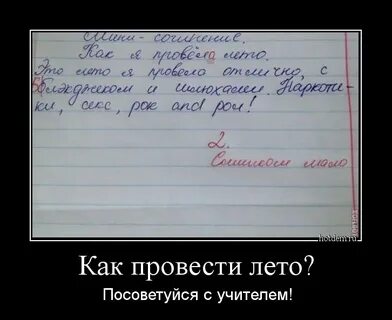 Мини-сочинение.
Как я провела лето.
Это лето я провела отлично, с
Блэкджеком и шлюхами. Наркоти-
ки, секс, рок and рол!
2.
Слишком мало
hotdem.ru
Как провести лето?
Посоветуйся с учителем!